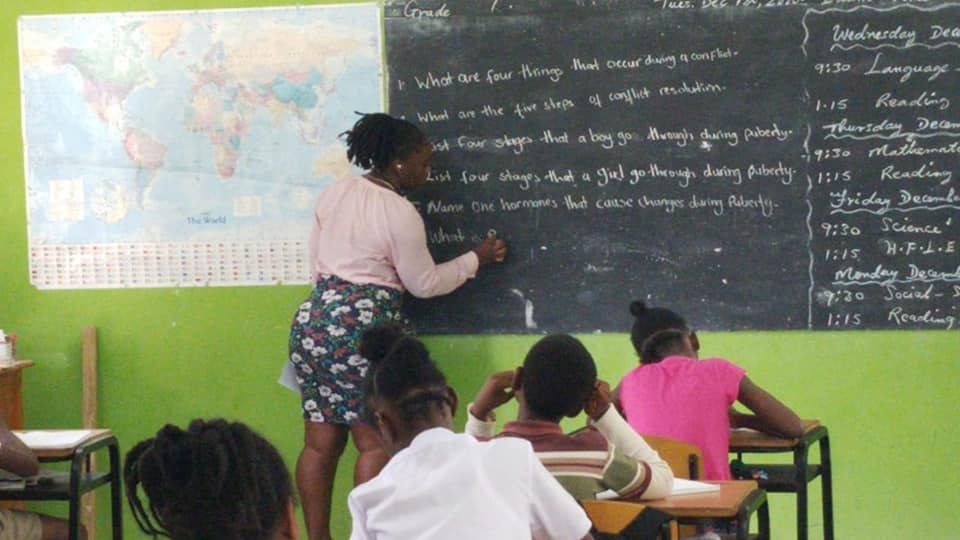 Grade 7.
Tues. Dec 1st,
1. What are four things that occur during a conflict.
What are the five steps of conflict resolution.
List four stages that a boy go through during puberty.
List four stages that a girl go through during puberty.
Name One hormones that cause changes during Puberty.
What
Wednesday Dec
9:30 Language -
1.15 Reading
Thursday Decem
9:30 Mathemat
1:15 Reading
Friday Decembe
9:30 Science
1:15 H.F.L.E
Monday Decemb
9:30 Social - S
1:15 Reading
The World